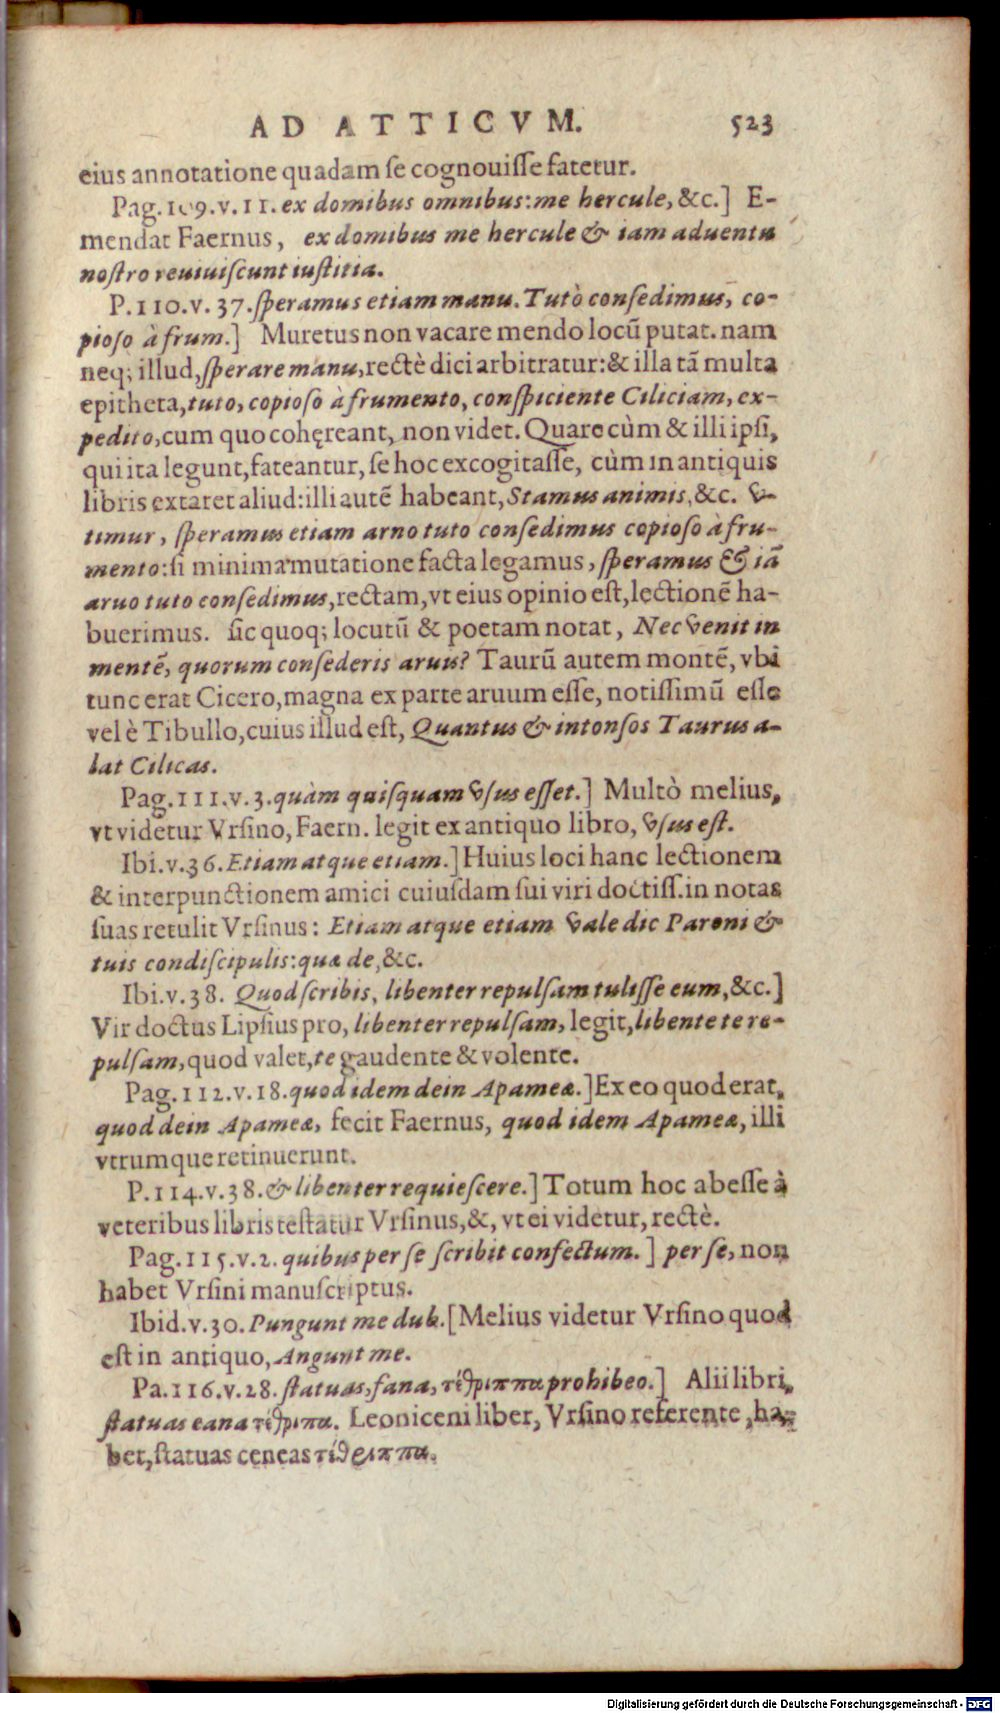 AD ATTICVM. 523
eius annotatione quadam se cognouisse fatetur.
Pag. 109. v. 11. ex domibus omnibus: me hercule, &c.] E-
mendat Faernus, ex domibus me hercule & iam aduentu
nostro reuiuiscunt iustitia.
P. 110. v. 37. speramus etiam manu. Tutò consedimus, co-
pioso à frum.] Muretus non vacare mendo locū putat. nam
neq; illud, sperare manu, rectè dici arbitratur: & illa tā multa
epitheta, tuto, copioso à frumento, conspiciente Ciliciam, ex-
pedito, cum quo cohęreant, non videt. Quare cùm & illi ipsi,
qui ita legunt, fateantur, se hoc excogitasse, cùm in antiquis
libris extaret aliud: illi autē habeant, Stamus animis, &c. v-
timur, speramus etiam arno tuto consedimus copioso à fru-
mento: si minima mutatione facta legamus, speramus & iā
aruo tuto consedimus, rectam, vt eius opinio est, lectionē ha-
buerimus. sic quoq; locutū & poetam notat, Nec venit in
mentē, quorum consederis aruis? Taurū autem montē, vbi
tunc erat Cicero, magna ex parte aruum esse, notissimū esse
vel è Tibullo, cuius illud est, Quantus & intonsos Taurus a-
lat Cilicas.
Pag. 111. v. 3. quàm quisquam vsus esset.] Multò melius,
vt videtur Vrsino, Faern. legit ex antiquo libro, vsus est.
Ibi. v. 36. Etiam atque etiam.] Huius loci hanc lectionem
& interpunctionem amici cuiusdam sui viri doctiss. in notas
suas retulit Vrsinus: Etiam atque etiam vale dic Paroni &
tuis condiscipulis: quæ de, &c.
Ibi. v. 38. Quod scribis, libenter repulsam tulisse eum, &c.]
Vir doctus Lipsius pro, libenter repulsam, legit, libente te re-
pulsam, quod valet, te gaudente & volente.
Pag. 112. v. 18. quod idem dein Apameæ.] Ex eo quod erat,
quod dein Apameæ, fecit Faernus, quod idem Apameæ, illi
vtrumque retinuerunt.
P. 114. v. 38. & libenter requiescere.] Totum hoc abesse à
veteribus libris testatur Vrsinus, &, vt ei videtur, rectè.
Pag. 115. v. 2. quibus per se scribit confectum.] per se, non
habet Vrsini manuscriptus.
Ibid. v. 30. Pungunt me dub.[Melius videtur Vrsino quod
est in antiquo, Angunt me.
Pa. 116. v. 28. statuas, fana, τέθριππα prohibeo.] Alii libri,
statuas eana τέθριππα. Leoniceni liber, Vrsino referente, ha-
bet, statuas ceneas τέθριππα.
Digitalisierung gefördert durch die Deutsche Forschungsgemeinschaft - DFG